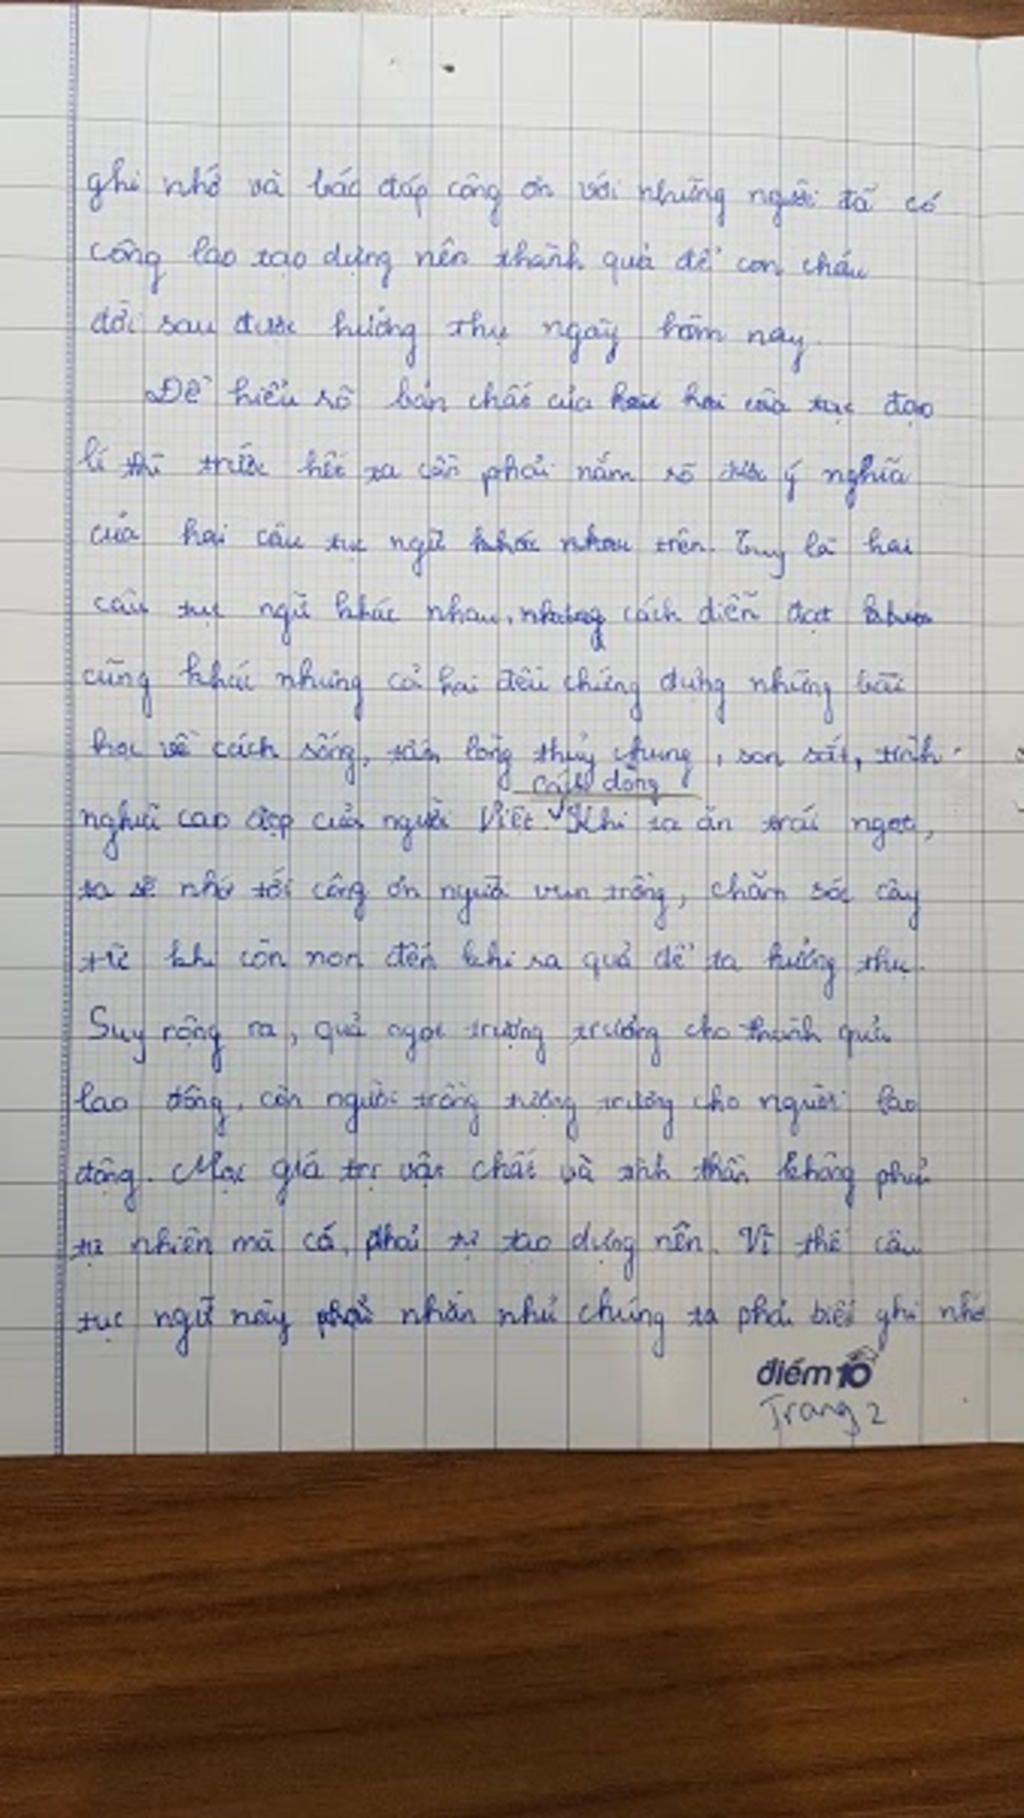 ghi nhớ và báo đáp công ơn với những người đã có
công lao tạo dựng nên thành quả để con cháu
đời sau được hưởng thụ ngày hôm nay.
Để hiểu rõ bản chất của hai của tục đạo
lí thì trước hết ta cần phải nắm rõ được ý nghĩa
của hai câu tục ngữ khác nhau trên. Tuy là hai
câu tục ngữ khác nhau, nhưng cách diễn đạt
cũng khác nhưng cả hai đều chứng dựng những bài
học về cách sống, tấm lòng thủy chung, son sắt, tình
cách dòng
nghĩa cao đẹp của người Việt. Khi ta ăn trái ngọt,
ta sẽ nhớ tới công ơn người vun trồng, chăm sóc cây
từ khi còn non đến khi ra quả để ta hưởng thụ.
Suy rộng ra, quả ngọt trượng trưởng cho thành quả
lao động, còn người trồng tượng trưởng cho người lao
động. Mọi giá trị vật chất và tinh thần không phải
tự nhiên mà có, phải tự tạo dựng nên. Vì thế câu
tục ngữ này nhắn nhủ chúng ta phải biết ghi nhớ
điểm 10
Trang 2